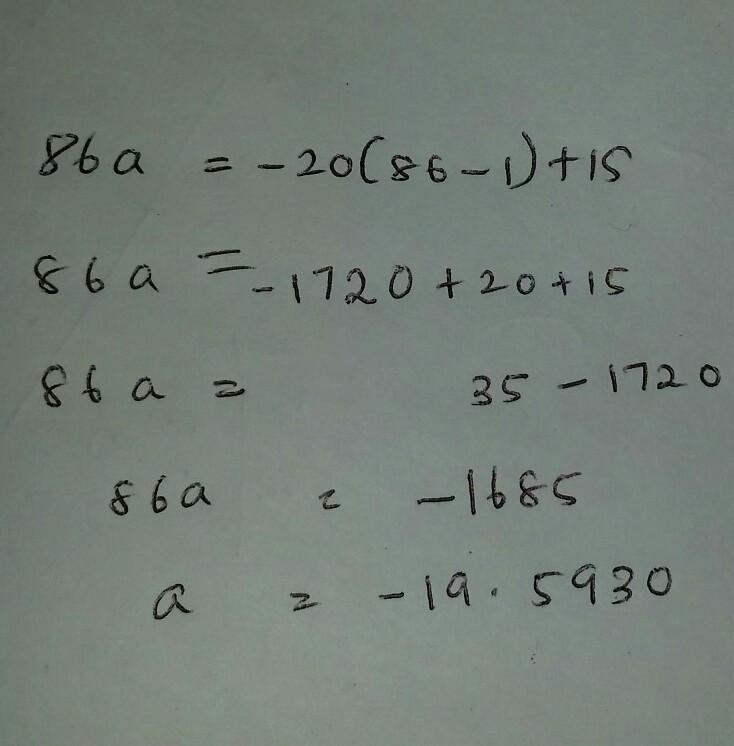 86a = -20(86-1)+15
86a = -1720+20+15
86a = 35-1720
86a = -1685
a = -19.5930